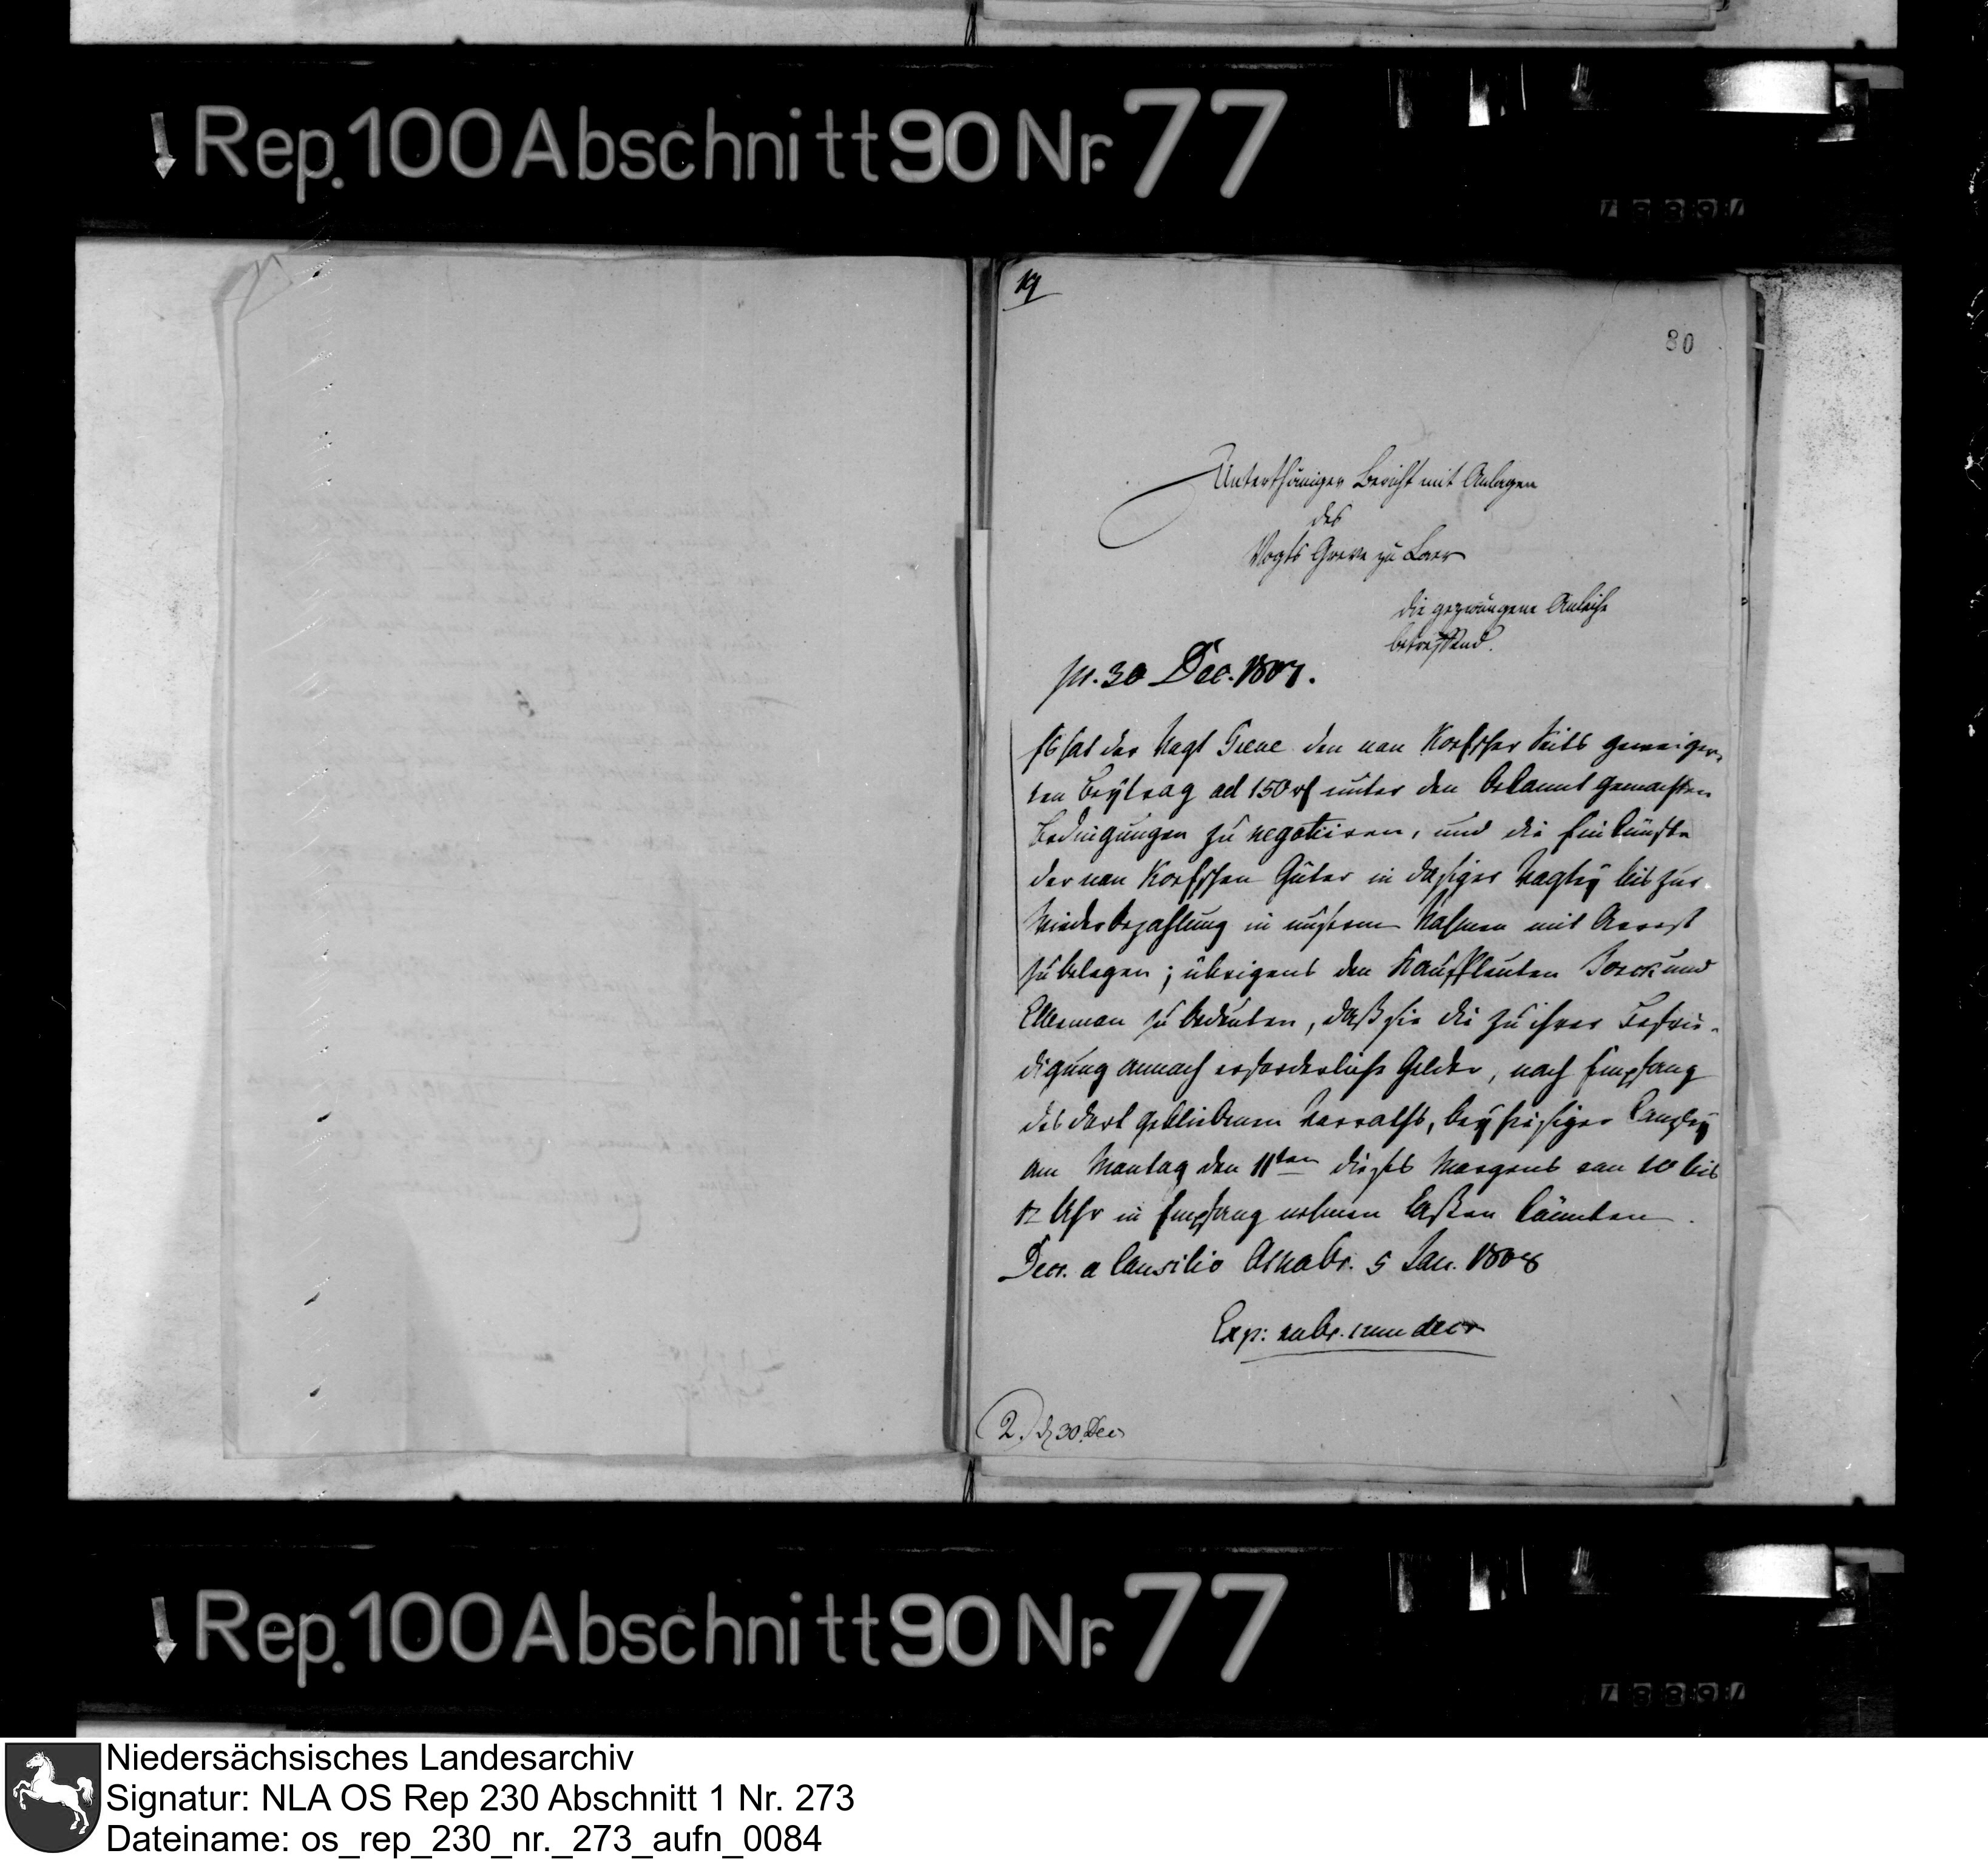 Rep. 100 Abschnitt 90 Nr. 77
19
80
Unterthäniger Bericht mit Anlagen
des
Vogts Greve zu Laer
die gezwungene Anleihe
betreffend.
pr. 30 Dec. 1807.
Es hat der Vogt Greve den von Korfscher Seits geweiger-
ten Beytrag ad 150 rt unter den bekannt gemachten
Bedingungen zu negotiiren, und die Einkünfte
der von Korfschen Güter in dasiger Vogtey bis zur
Wiederbezahlung in unserm Nahmen mit Arrest
zu belegen; übrigens den Kaufleuten und
Ellerman zu bedeuten, daß sie die zu ihrer Befrie-
digung annoch erforderliche Gelder, nach Empfang
des dort gebliebenen Vorraths, bey hiesiger Canzley
am Montag den 11ten dieses Morgens von 10 bis
12 Uhr in Empfang nehmen laßen könnten.
Decr. a Consilio Osnabr. 5 Jan. 1808
Exp:
2.) 30. Dec
Rep. 100 Abschnitt 90 Nr. 77
Niedersächsisches Landesarchiv
Signatur: NLA OS Rep 230 Abschnitt 1 Nr. 273
Dateiname: os_rep_230_nr._273_aufn_0084